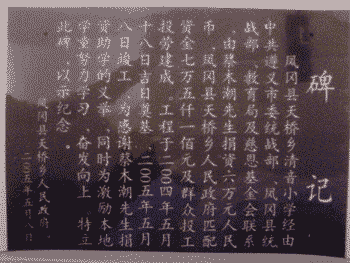 碑记
凤冈县天桥乡清音小学经由
中共遵义市委统战部、凤冈县统
战部、教育局及慈恩基金会联系
、由蔡木潮先生捐资六万元人民
币、凤冈县天桥乡人民政府匹配
资金七万五仟一佰元及群众投工
投劳建成。工程于二00四年五月
十八日吉日奠基、二00五年五月
八日竣工。为感谢蔡木潮先生捐
资助学的义举、同时为激励本地
学童努力学习、奋发向上、特立
此碑、以示纪念。
凤冈县天桥乡人民政府
二00五年五月八日